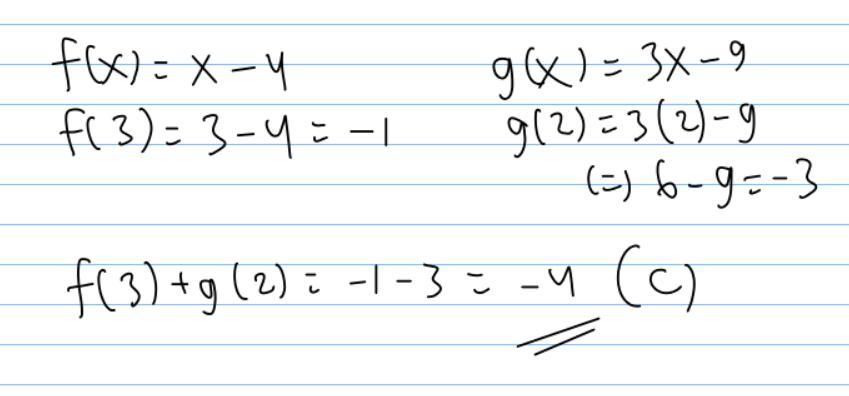 f(x) = x - 4
f(3) = 3 - 4 = -1
g(x) = 3x - 9
g(2) = 3(2) - 9
(=) 6 - 9 = -3
f(3) + g(2) = -1 - 3 = -4 (C)